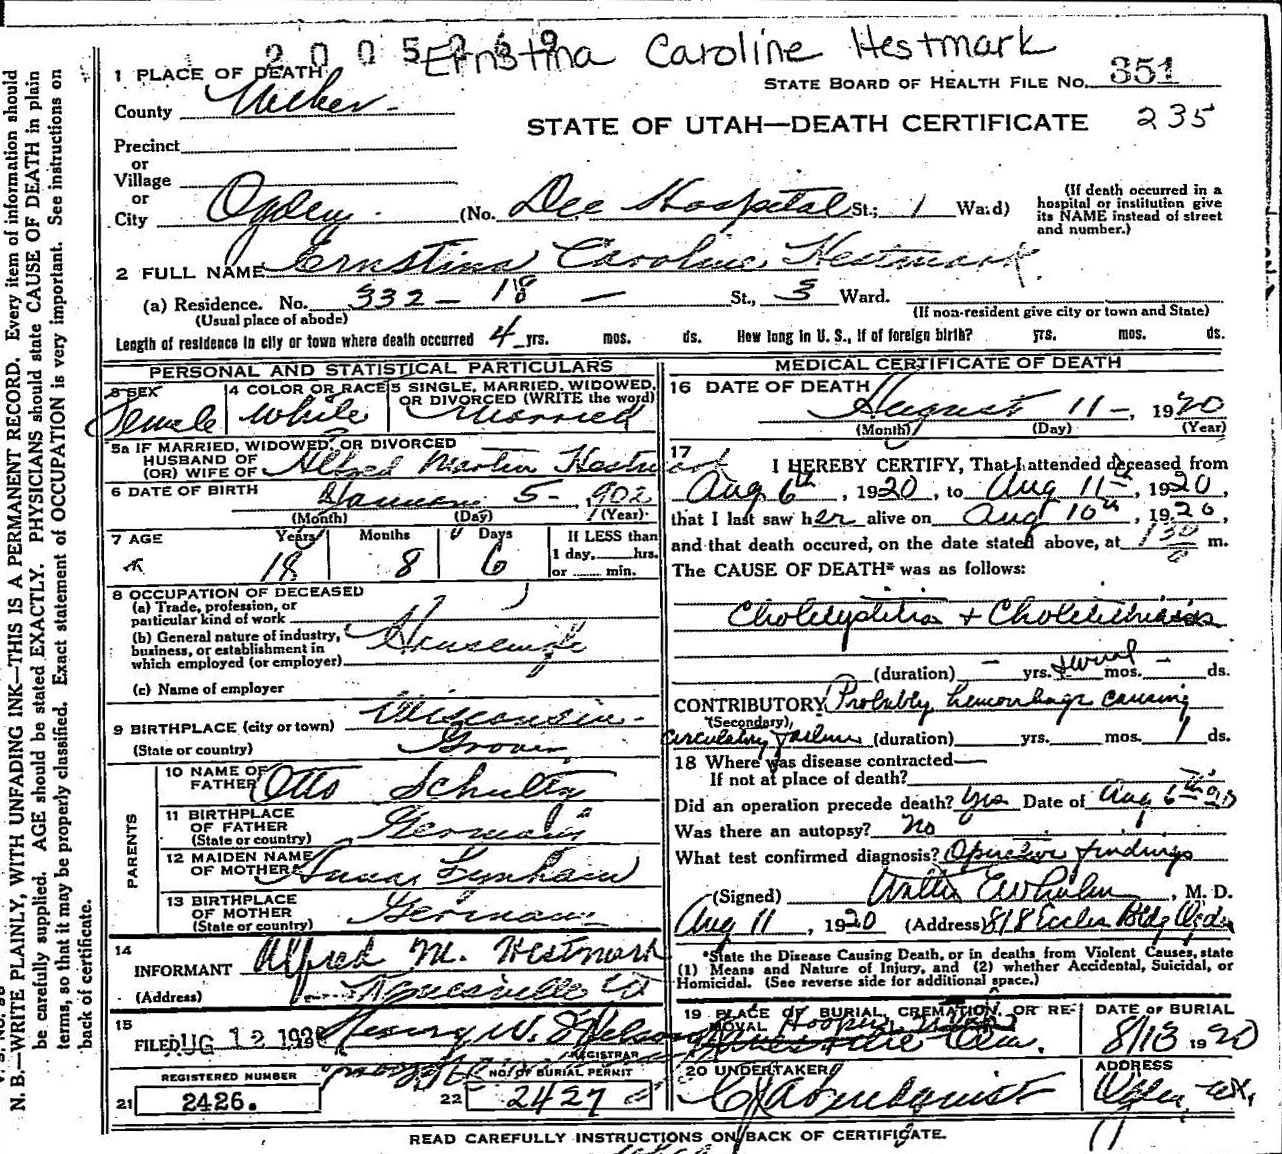 Ernstina Caroline Hestmark
1 PLACE OF DEATH
STATE BOARD OF HEALTH FILE NO. 351
County Weber
STATE OF UTAH—DEATH CERTIFICATE 235
Precinct
or
Village
or
City Ogden (No. Dee Hospital St.; 1 Ward)
(If death occurred in a hospital or institution give its NAME instead of street and number.)
2 FULL NAME Ernstina Caroline Hestmark
(a) Residence. No. 332 - 18 — St., 3 Ward.
(Usual place of abode) (If non-resident give city or town and State)
Length of residence in city or town where death occurred 4 yrs. mos. ds. How long in U. S., if of foreign birth? yrs. mos. ds.
PERSONAL AND STATISTICAL PARTICULARS
3 SEX Female
4 COLOR OR RACE White
5 SINGLE, MARRIED, WIDOWED, OR DIVORCED (WRITE the word) Married
5a IF MARRIED, WIDOWED, OR DIVORCED
HUSBAND OF
(OR) WIFE OF Alfred Martin Hestmark
6 DATE OF BIRTH 5 - 1902
(Month) (Day) (Year)
7 AGE Years Months Days If LESS than
18 8 6 1 day, hrs.
or min.
8 OCCUPATION OF DECEASED
(a) Trade, profession, or
particular kind of work
(b) General nature of industry,
business, or establishment in
which employed (or employer)
Housewife
(c) Name of employer
9 BIRTHPLACE (city or town) Wisconsin
(State or country)
PARENTS
10 NAME OF FATHER Otto
11 BIRTHPLACE OF FATHER
(State or country) Germany
12 MAIDEN NAME OF MOTHER Anna
13 BIRTHPLACE OF MOTHER
(State or country) Germany
14
INFORMANT Alfred M. Hestmark
(Address)
15
FILED AUG 12 1920 Henry W.
REGISTRAR
REGISTERED NUMBER
21 2426.
NO. OF BURIAL PERMIT
22 2427
MEDICAL CERTIFICATE OF DEATH
16 DATE OF DEATH August 11 -, 1920
(Month) (Day) (Year)
17
I HEREBY CERTIFY, That I attended deceased from
Aug 6th, 1920, to Aug 11th, 1920,
that I last saw her alive on Aug 10th, 1920,
and that death occured, on the date stated above, at 1 30 m.
The CAUSE OF DEATH* was as follows:
Cholecystitis + Cholelithiasis
(duration) - yrs. several mos. - ds.
CONTRIBUTORY Probably hemorrhage causing
(Secondary)
circulatory failure (duration) yrs. mos. 1 ds.
18 Where was disease contracted—
If not at place of death?
Did an operation precede death? Yes Date of Aug 6th 20
Was there an autopsy? No
What test confirmed diagnosis? Operative findings
(Signed) Walter, M. D.
Aug 11, 1920 (Address) 818 Eccles Bldg Ogden
*State the Disease Causing Death, or in deaths from Violent Causes, state
(1) Means and Nature of Injury, and (2) whether Accidental, Suicidal, or
Homicidal. (See reverse side for additional space.)
19 PLACE OF BURIAL, CREMATION, OR REMOVAL Hooper
DATE OF BURIAL
8/13 1920
20 UNDERTAKER
ADDRESS
Ogden
READ CAREFULLY INSTRUCTIONS ON BACK OF CERTIFICATE.
N. B.—WRITE PLAINLY, WITH UNFADING INK—THIS IS A PERMANENT RECORD. Every item of information should
be carefully supplied. AGE should be stated EXACTLY. PHYSICIANS should state CAUSE OF DEATH in plain
terms, so that it may be properly classified. Exact statement of OCCUPATION is very important. See instructions on
back of certificate.